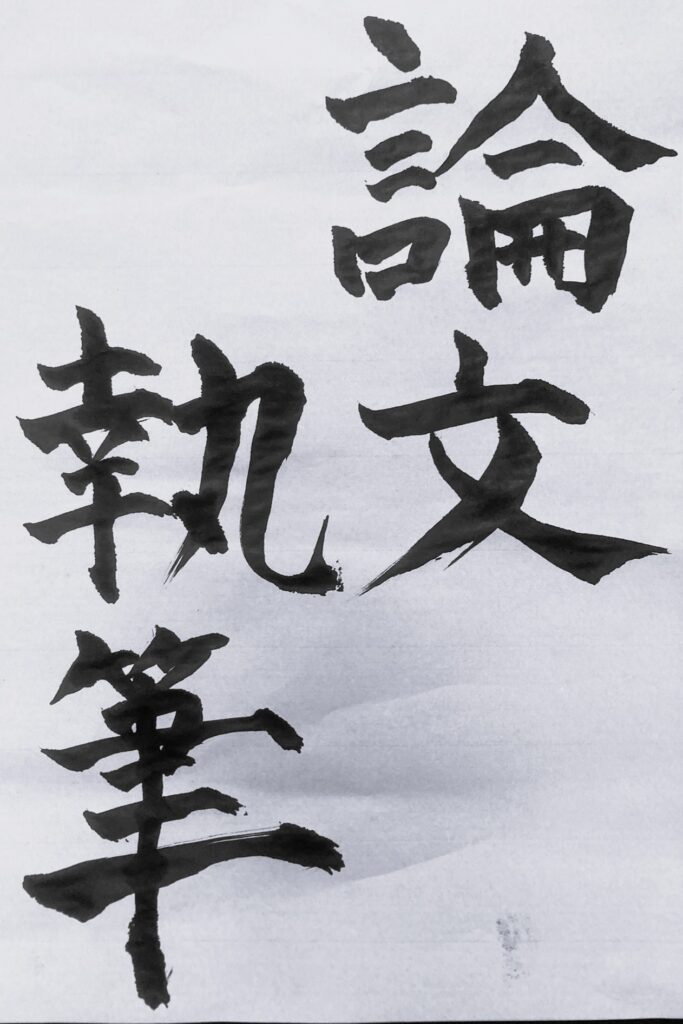 論文
執筆